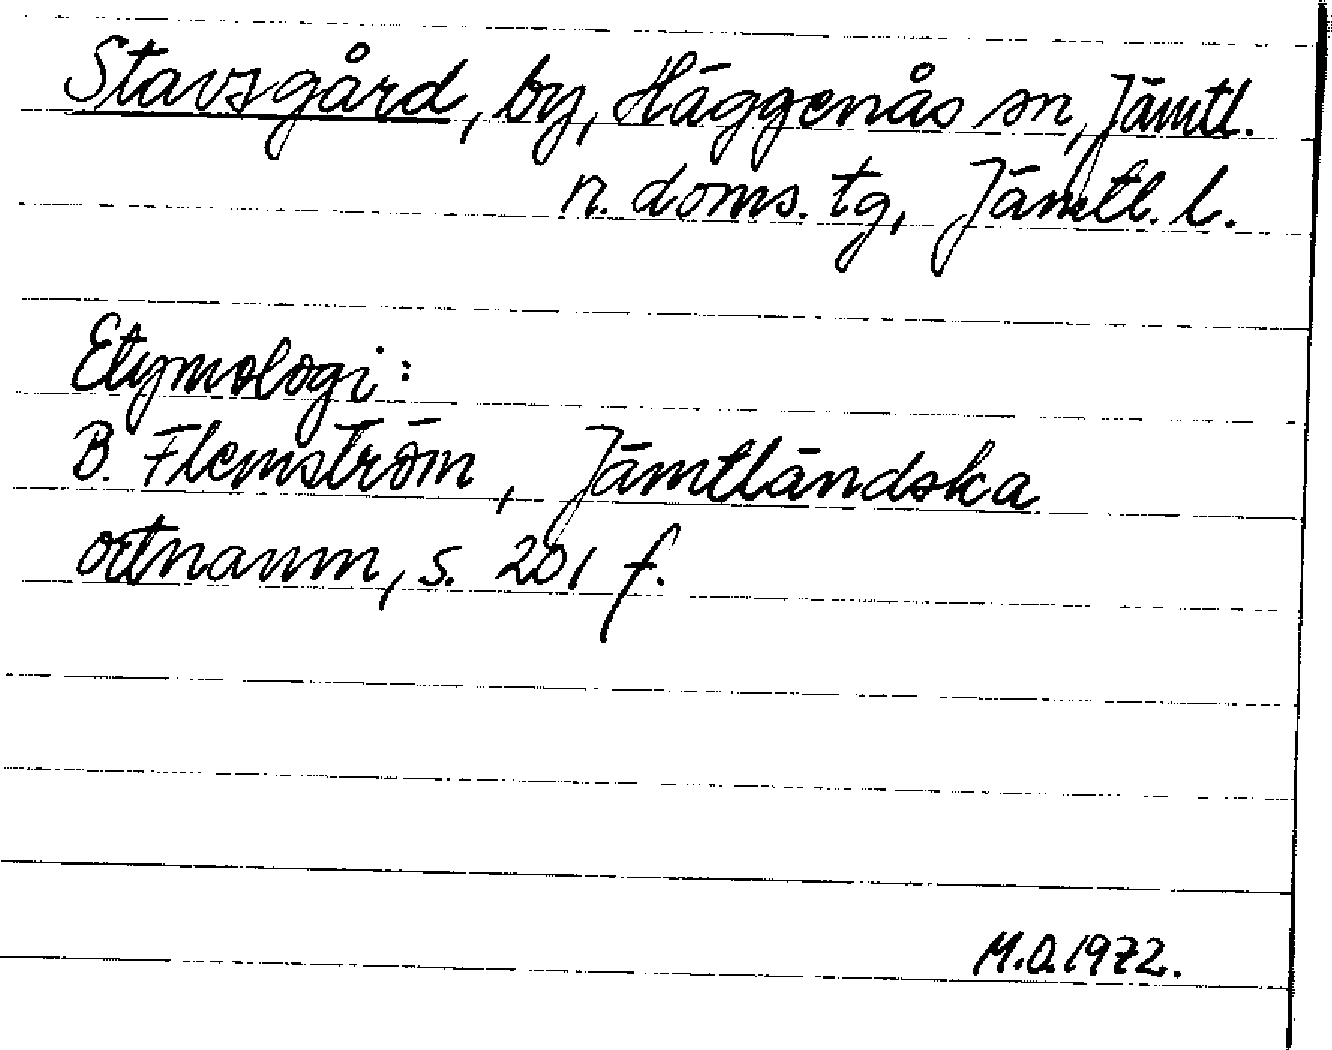 Stavsgård, by, Häggenås sn, Jämtl.
n. doms. tg, Jämtl. l.
Etymologi:
B. Flemström, Jämtländska
ortnamn, s. 201 f.
M.O. 1972.